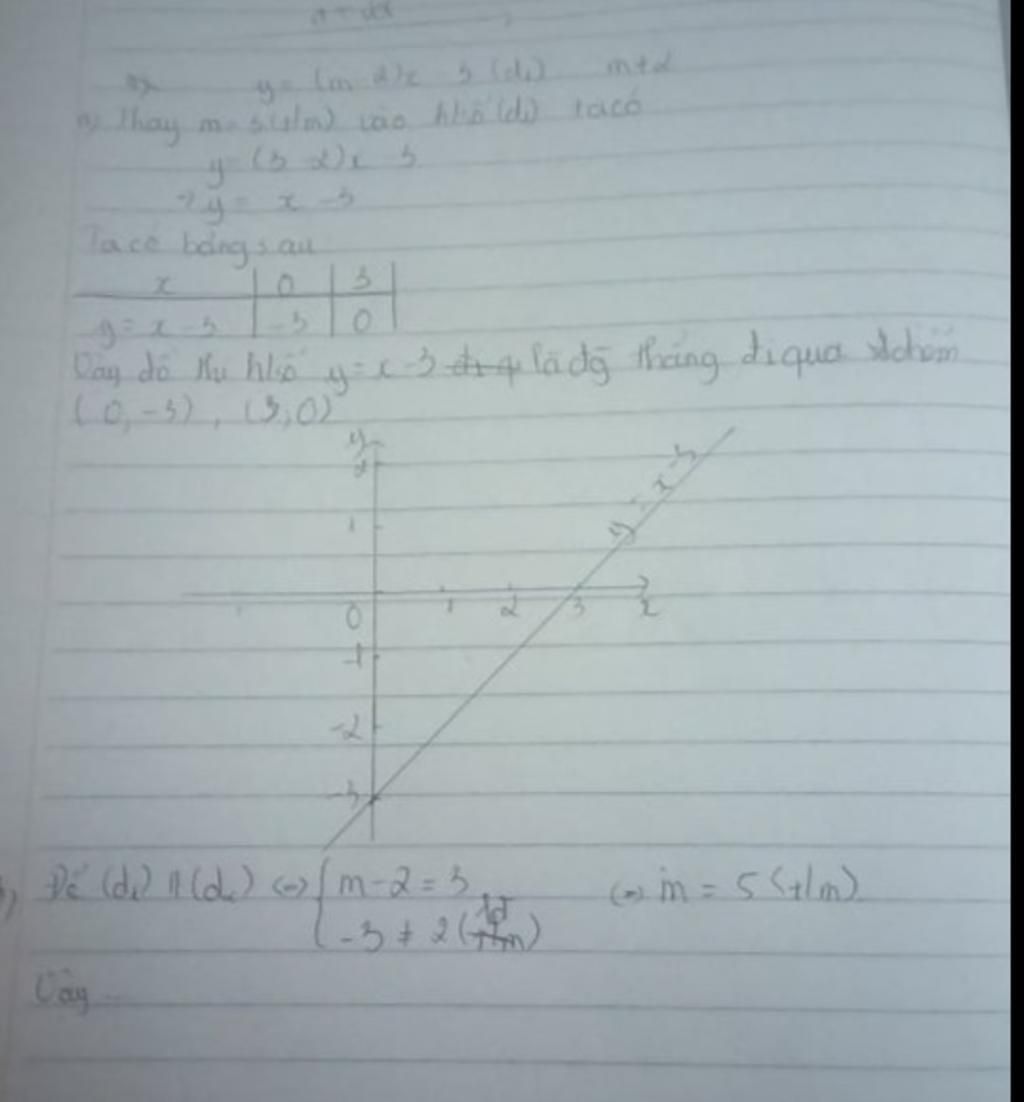 y = (m-2)x-3 (d₁) m≠2
a) Thay m=3(t/m) vào h/số (d₁) ta có
y=(3-2)x-3
→ y = x-3
Ta có bảng sau
x | 0 | 3
y = x-3 | -3 | 0
Vậy đồ thị h/số y=x-3 là đg thẳng đi qua điểm
(0,-3), (3,0)
y
2
y = x-3
1
0 1 2 3 x
-1
-2
-3
Để (d₁) // (d₂) <=> { m-2=3 <=> m = 5 (t/m)
-3 ≠ 2 (lđ)
Vậy